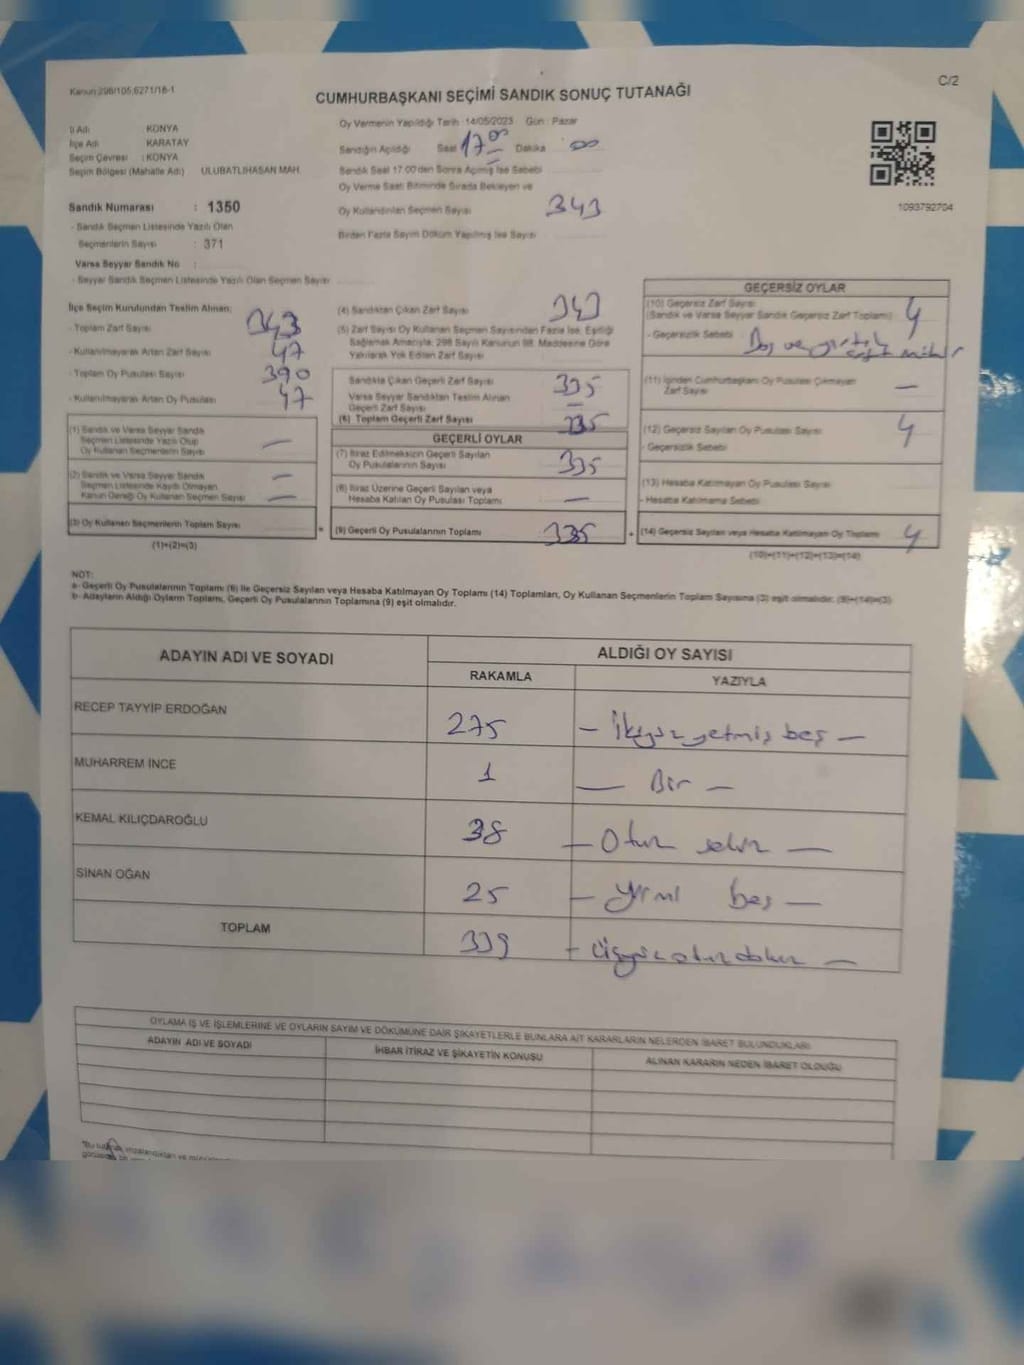 Kanun:298/105,6271/18-1
C/2
CUMHURBAŞKANI SEÇİMİ SANDIK SONUÇ TUTANAĞI
İl Adı : KONYA
İlçe Adı : KARATAY
Seçim Çevresi : KONYA
Seçim Bölgesi (Mahalle Adı) ULUBATLIHASAN MAH.
Sandık Numarası : 1350
- Sandık Seçmen Listesinde Yazılı Olan
Seçmenlerin Sayısı : 371
Varsa Seyyar Sandık No :
- Seyyar Sandık Seçmen Listesinde Yazılı Olan Seçmen Sayısı
Oy Vermenin Yapıldığı Tarih :14/05/2023 Gün : Pazar
Sandığın Açıldığı Saat 17 00 Dakika 00
Sandık Saat 17:00'den Sonra Açılmış İse Sebebi
Oy Verme Saati Bitiminde Sırada Bekleyen ve
Oy Kullandırılan Seçmen Sayısı 343
Birden Fazla Sayım Döküm Yapılmış İse Sayısı
1093792704
İlçe Seçim Kurulundan Teslim Alınan:
- Toplam Zarf Sayısı 343
- Kullanılmayarak Artan Zarf Sayısı 47
- Toplam Oy Pusulası Sayısı 390
- Kullanılmayarak Artan Oy Pusulası 47
(1) Sandık ve Varsa Seyyar Sandık
Seçmen Listesinde Yazılı Olup
Oy Kullanan Seçmenlerin Sayısı —
(2) Sandık ve Varsa Seyyar Sandık
Seçmen Listesinde Kayıtlı Olmayan —
Kanun Gereği Oy Kullanan Seçmen Sayısı —
(3) Oy Kullanan Seçmenlerin Toplam Sayısı
(1)+(2)=(3)
(4) Sandıktan Çıkan Zarf Sayısı 343
(5) Zarf Sayısı Oy Kullanan Seçmen Sayısından Fazla İse, Eşitliği
Sağlamak Amacıyla, 298 Sayılı Kanunun 98. Maddesine Göre
Yakılarak Yok Edilen Zarf Sayısı
Sandıkta Çıkan Geçerli Zarf Sayısı 335
Varsa Seyyar Sandıktan Teslim Alınan
Geçerli Zarf Sayısı —
(6) Toplam Geçerli Zarf Sayısı 335
GEÇERLİ OYLAR
(7) İtiraz Edilmeksizin Geçerli Sayılan
Oy Pusulalarının Sayısı 335
(8) İtiraz Üzerine Geçerli Sayılan veya
Hesaba Katılan Oy Pusulası Toplamı —
(9) Geçerli Oy Pusulalarının Toplamı 335
GEÇERSİZ OYLAR
(10) Geçersiz Zarf Sayısı
(Sandık ve Varsa Seyyar Sandık Geçersiz Zarf Toplamı) 4
- Geçersizlik Sebebi : Boş ve
(11) İçinden Cumhurbaşkanı Oy Pusulası Çıkmayan
Zarf Sayısı —
(12) Geçersiz Sayılan Oy Pusulası Sayısı 4
- Geçersizlik Sebebi
(13) Hesaba Katılmayan Oy Pusulası Sayısı
- Hesaba Katılmama Sebebi
(14) Geçersiz Sayılan veya Hesaba Katılmayan Oy Toplamı 4
(10)+(11)+(12)+(13)=(14)
NOT:
a- Geçerli Oy Pusulalarının Toplamı (9) ile Geçersiz Sayılan veya Hesaba Katılmayan Oy Toplamı (14) Toplamları, Oy Kullanan Seçmenlerin Toplam Sayısına (3) eşit olmalıdır. (9)+(14)=(3)
b- Adayların Aldığı Oyların Toplamı, Geçerli Oy Pusulalarının Toplamına (9) eşit olmalıdır.
ADAYIN ADI VE SOYADI
ALDIĞI OY SAYISI
RAKAMLA YAZIYLA
RECEP TAYYİP ERDOĞAN 275 — İkiyüz yetmiş beş —
MUHARREM İNCE 1 — Bir —
KEMAL KILIÇDAROĞLU 38 — Otuz sekiz —
SİNAN OĞAN 25 — Yirmi beş —
TOPLAM 339 — üçyüz otuz dokuz —
OYLAMA İŞ VE İŞLEMLERİNE VE OYLARIN SAYIM VE DÖKÜMÜNE DAİR ŞİKAYETLERLE BUNLARA AİT KARARLARIN NELERDEN İBARET BULUNDUKLARI
ADAYIN ADI VE SOYADI İHBAR İTİRAZ VE ŞİKAYETİN KONUSU ALINAN KARARIN NEDEN İBARET OLDUĞU